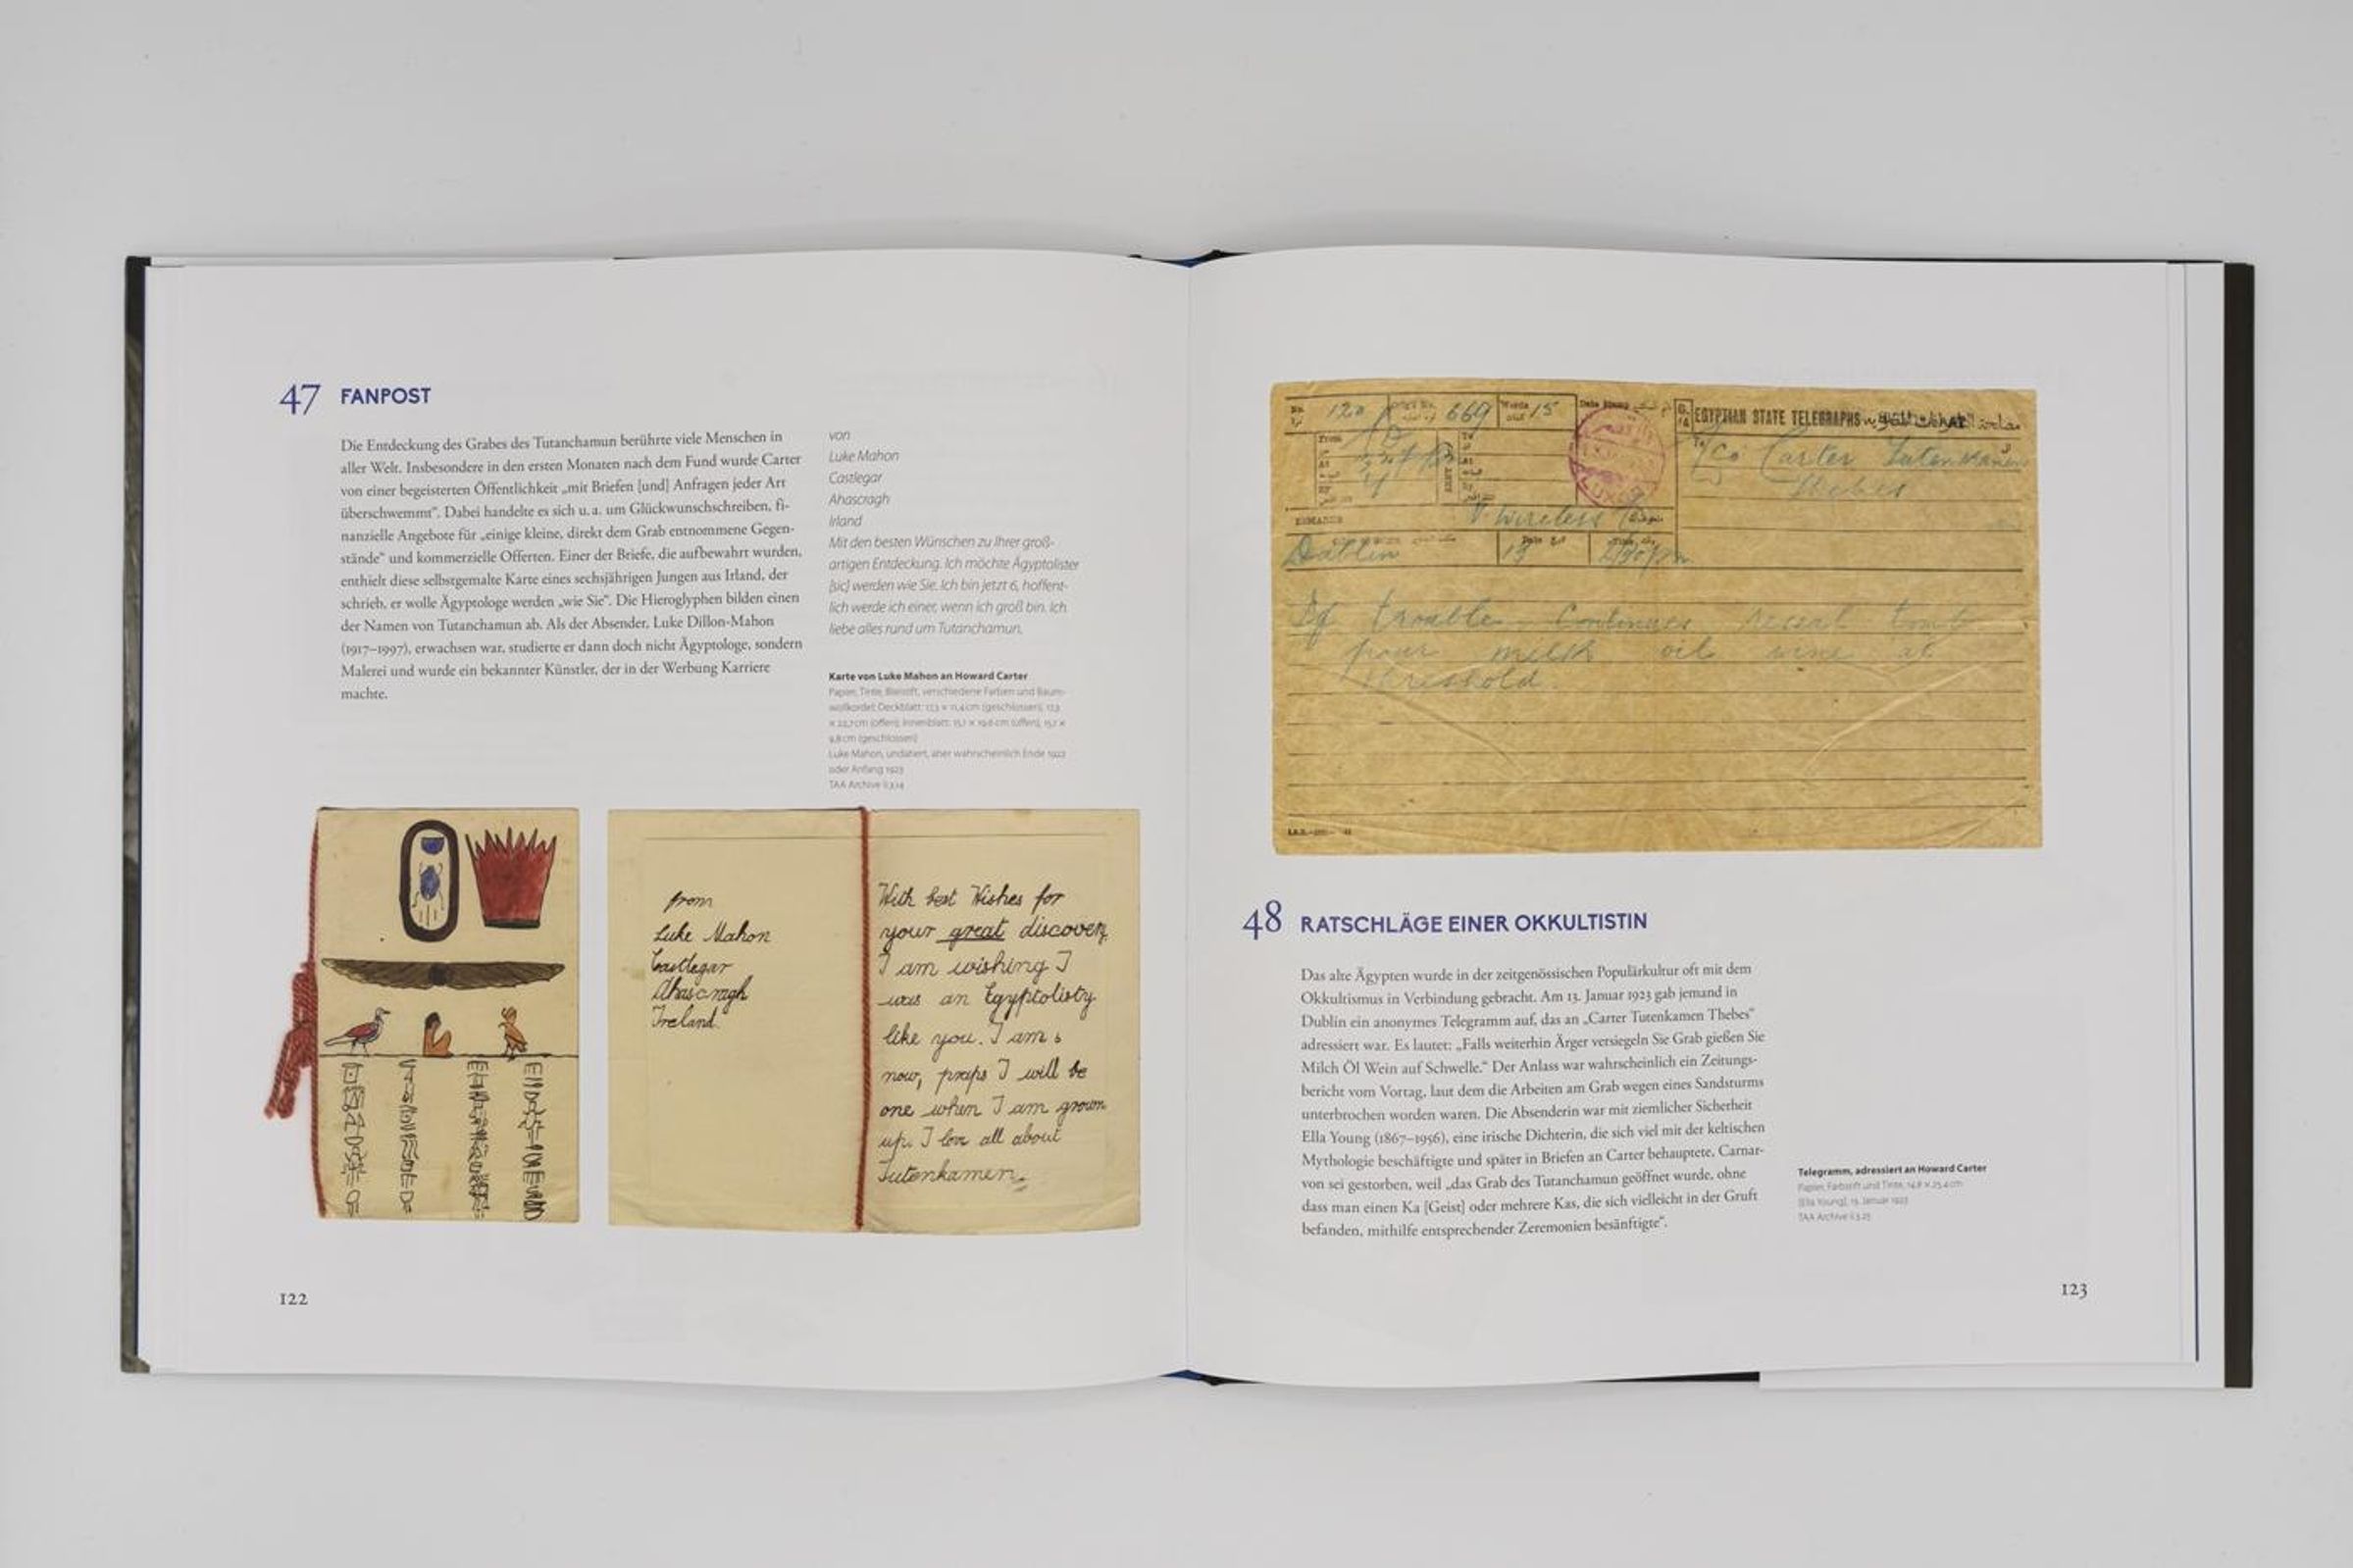 47 FANPOST
Die Entdeckung des Grabes des Tutanchamun berührte viele Menschen in
aller Welt. Insbesondere in den ersten Monaten nach dem Fund wurde Carter
von einer begeisterten Öffentlichkeit „mit Briefen [und] Anfragen jeder Art
überschwemmt“. Dabei handelte es sich u. a. um Glückwunschschreiben, fi-
nanzielle Angebote für „einige kleine, direkt dem Grab entnommene Gegen-
stände“ und kommerzielle Offerten. Einer der Briefe, die aufbewahrt wurden,
enthielt diese selbstgemalte Karte eines sechsjährigen Jungen aus Irland, der
schrieb, er wolle Ägyptologe werden „wie Sie“. Die Hieroglyphen bilden einen
der Namen von Tutanchamun ab. Als der Absender, Luke Dillon-Mahon
(1917–1997), erwachsen war, studierte er dann doch nicht Ägyptologe, sondern
Malerei und wurde ein bekannter Künstler, der in der Werbung Karriere
machte.
von
Luke Mahon
Castlegar
Ahascragh
Irland
Mit den besten Wünschen zu Ihrer groß-
artigen Entdeckung. Ich möchte Ägyptolister
[sic] werden wie Sie. Ich bin jetzt 6, hoffent-
lich werde ich einer, wenn ich groß bin. Ich
liebe alles rund um Tutanchamun.
Karte von Luke Mahon an Howard Carter
Papier, Tinte, Bleistift, verschiedene Farben und Baum-
wollkordel; Deckblatt: 17,3 × 11,4 cm (geschlossen), 17,3
× 22,7 cm (offen); Innenblatt: 15,1 × 19,6 cm (offen), 15,1 ×
9,8 cm (geschlossen)
Luke Mahon, undatiert, aber wahrscheinlich Ende 1922
oder Anfang 1923
TAA Archive
from
Luke Mahon
Castlegar
Ahascragh
Ireland
With best Wishes for
your great discovery.
I am wishing I
was an Egyptolisty
like you. I am 6
now, praps I will be
one when I am grown
up. I love all about
Tutenkamen.
122
No. 120 669 Words 15
EGYPTIAN STATE TELEGRAPHS
From
To
At
LUXOR
Carter Tutenkamen
Thebes
REMARKS
wireless
Dublin 13 2/30pm
If trouble continues reseal tomb
pour milk oil wine at
threshold
48 RATSCHLÄGE EINER OKKULTISTIN
Das alte Ägypten wurde in der zeitgenössischen Populärkultur oft mit dem
Okkultismus in Verbindung gebracht. Am 13. Januar 1923 gab jemand in
Dublin ein anonymes Telegramm auf, das an „Carter Tutenkamen Thebes“
adressiert war. Es lautet: „Falls weiterhin Ärger versiegeln Sie Grab gießen Sie
Milch Öl Wein auf Schwelle.“ Der Anlass war wahrscheinlich ein Zeitungs-
bericht vom Vortag, laut dem die Arbeiten am Grab wegen eines Sandsturms
unterbrochen worden waren. Die Absenderin war mit ziemlicher Sicherheit
Ella Young (1867–1956), eine irische Dichterin, die sich viel mit der keltischen
Mythologie beschäftigte und später in Briefen an Carter behauptete, Carnar-
von sei gestorben, weil „das Grab des Tutanchamun geöffnet wurde, ohne
dass man einen Ka [Geist] oder mehrere Kas, die sich vielleicht in der Gruft
befanden, mithilfe entsprechender Zeremonien besänftigte“.
Telegramm, adressiert an Howard Carter
Papier, Farbstift und Tinte, 14,8 × 25,4 cm
[Ella Young], 13. Januar 1923
TAA Archive
123